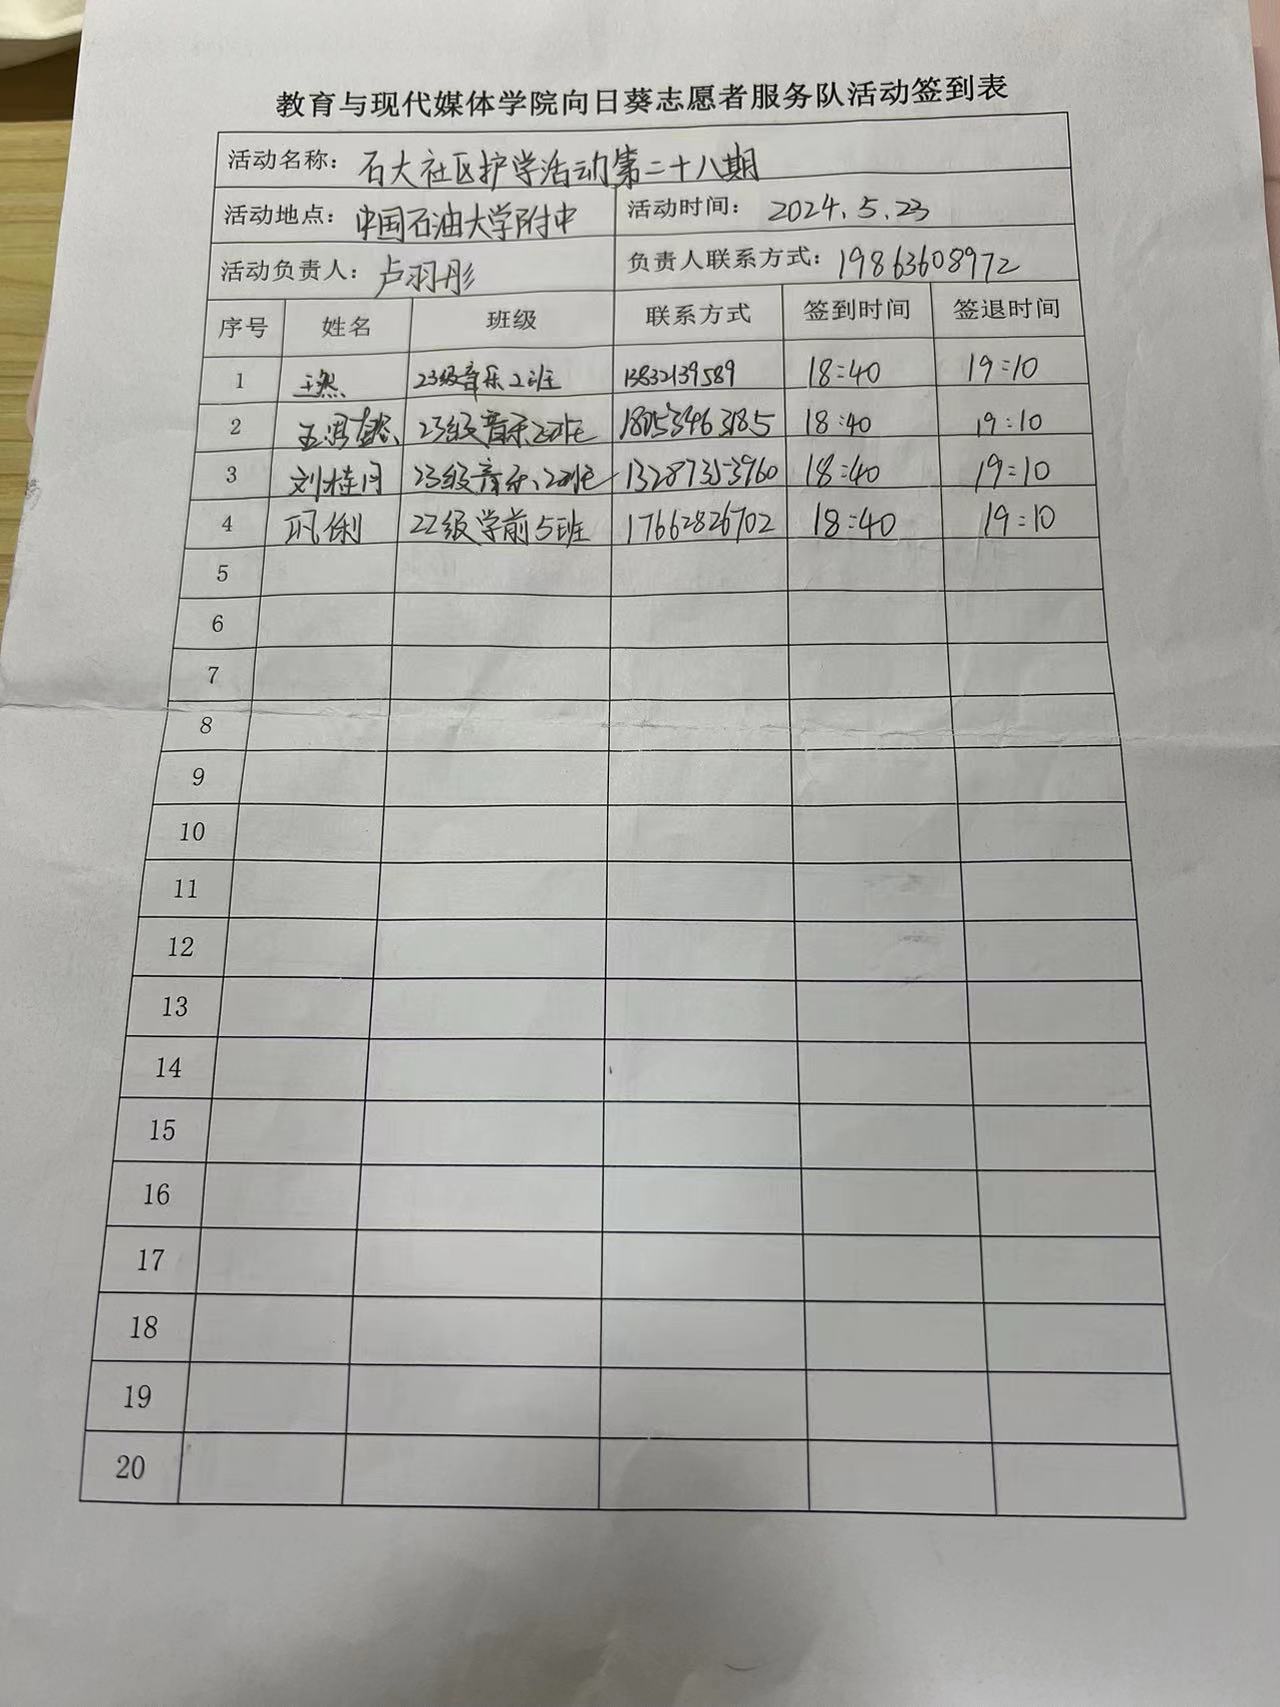 教育与现代媒体学院向日葵志愿者服务队活动签到表
活动名称：石大社区护学活动第二十八期
活动地点：中国石油大学附中 活动时间：2024.5.23
活动负责人：卢羽彤 负责人联系方式：19863608972
序号 姓名 班级 联系方式 签到时间 签退时间
1 王然 23级音乐2班 13832139589 18:40 19:10
2 23级音乐2班 18053463185 18:40 19:10
3 刘桂月 23级音乐2班 13287353960 18:40 19:10
4 巩俐 22级学前5班 17662826702 18:40 19:10
5
6
7
8
9
10
11
12
13
14
15
16
17
18
19
20